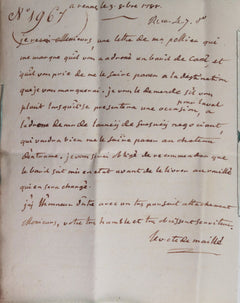 N° 1967
a rennes le 3. 8bre 1788.
je reçois Messieurs, une lettre de mr pellier qui
me marque qu'il vous a adressé un baril de Café et
qu'il vous prie de me le faire passer a la destination
que je vous marquerai. je vous le demande s'il vous
plait lorsqu'il se presentera une occasion, pour Laval
a l'adresse de mr de launay de negociant,
qui voudra bien me le faire passer au chateau
. je vous serai obligé de recommander que
le baril soit mis en etat avant de le livrer au
qui en sera chargé.
j'ai l'honneur d'etre avec un tres parfait attachement
Messieurs, votre tres humble et tres obeissant serviteur,
le cte de maillé